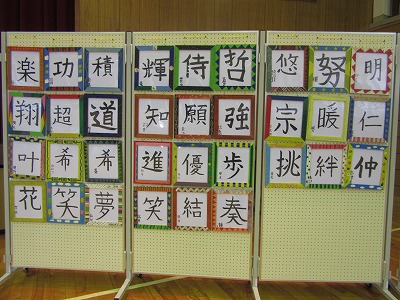 楽 功 積
翔 超 道
叶 希 希
花 笑 夢
輝 侍 哲
知 願 強
進 優 歩
笑 結 奏
悠 努 明
宗 暖 仁
挑 絆 仲